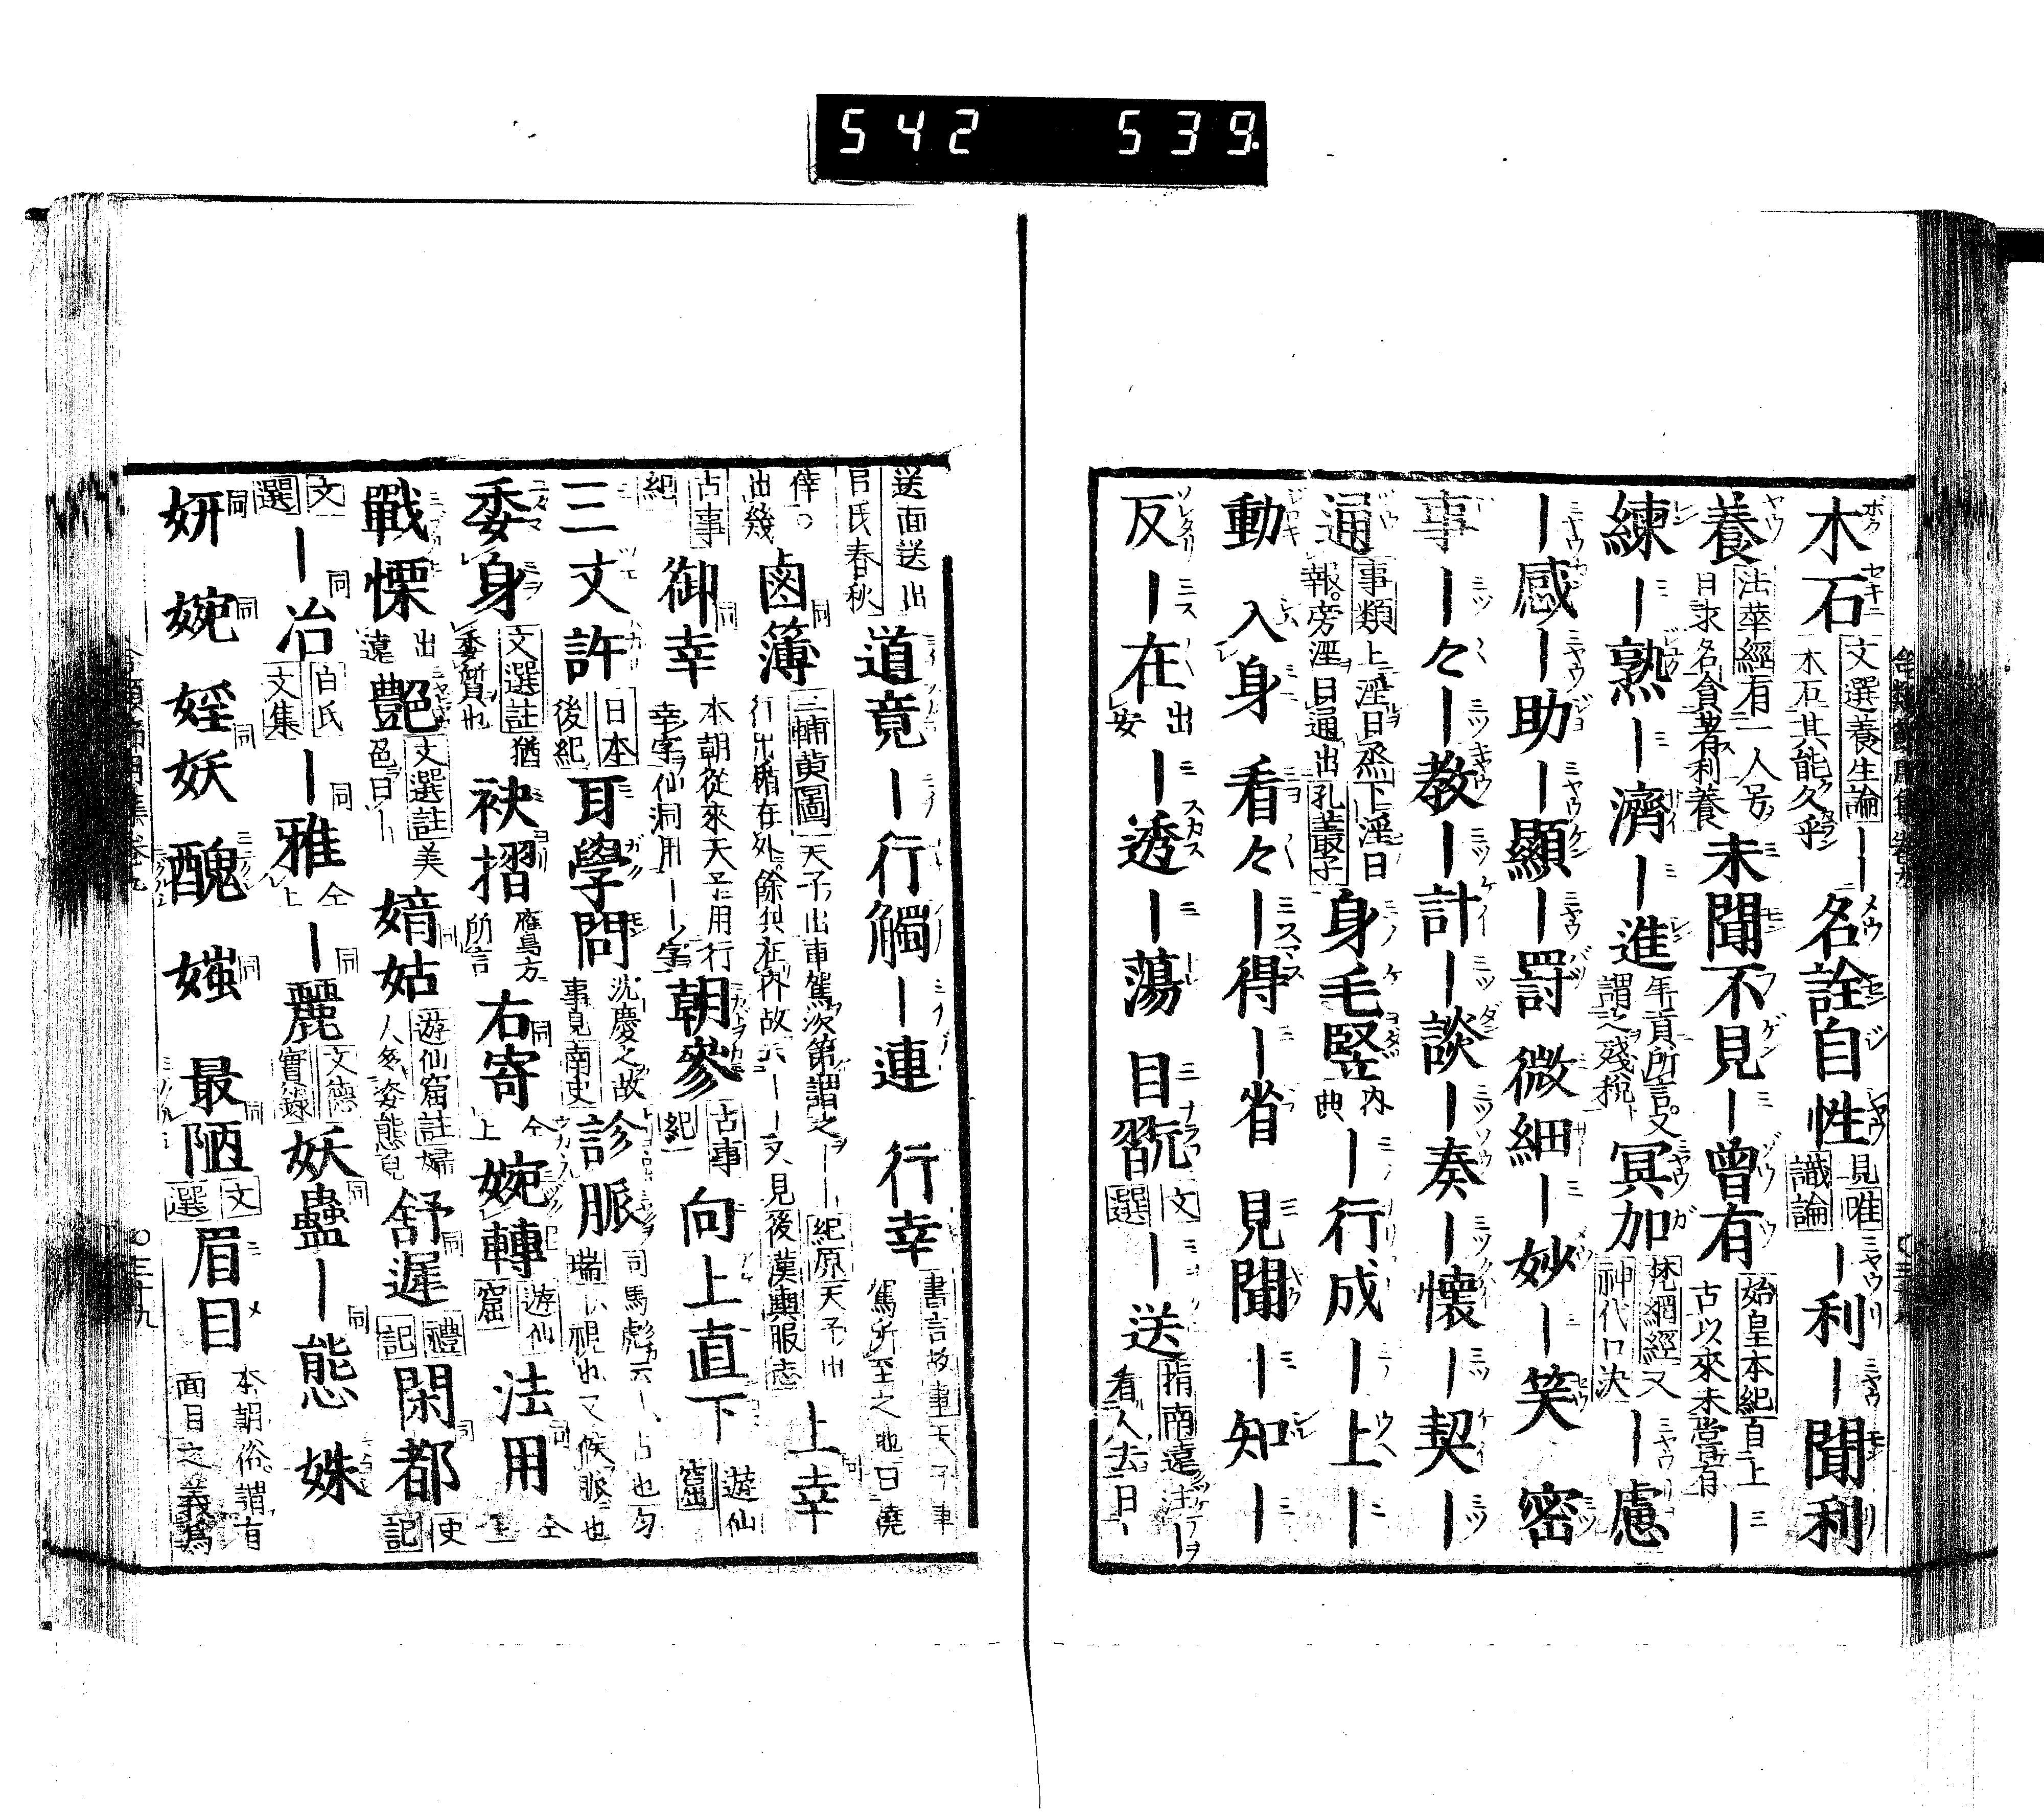 542 539.
木石文選養生論――木石其能久乎名詮自性見唯識論―利―聞利
養法華經有一人号曰求名貪著利養未聞不見―曾有始皇本紀自上古以來未嘗有―
練―熟―濟―進年貢所言又謂之殘税冥加梵網經又神代口決―慮
―感―助―顯―罸微細―妙―笑密
事―々―教―計―談―奏―懷―契―
通事類上淫曰烝下淫曰報旁淫曰通出孔叢子身毛竪内典―行成―上―
動入身看々―得―省見聞―知―
反―在出―透―蕩目習翫文選―送指南遠注―看人去曰―
送面送出呂氏春秋道竟―行觸―連行幸書言故事天子車駕所至之地曰僥
倖出幾鹵簿三輔黄圖天子出車駕次第謂之――紀原天子出行出楯在外餘與在内故云――又見後漢輿服志上幸
古事紀御幸本朝從來天子用行幸字仙洞用――字朝參古事紀向上直下遊仙窟
三丈許日本後紀耳學問沈慶之故事見南史診脈司馬彪云―占也匀瑞―視也又候脈也
委身文選註猶委質也袂摺鷹鳥方所言右寄仝上婉轉遊仙窟法用仝上
戰慄出遠艶文選註美色曰―媠姑遊仙窟註婦人多姿態皃舒遲禮記閑都史記
文選―冶白氏文集―雅仝上―麗文德實錄妖蠱―態姝
妍婉婬妖醜媸最陋文選眉目本朝俗謂有面目之義爲